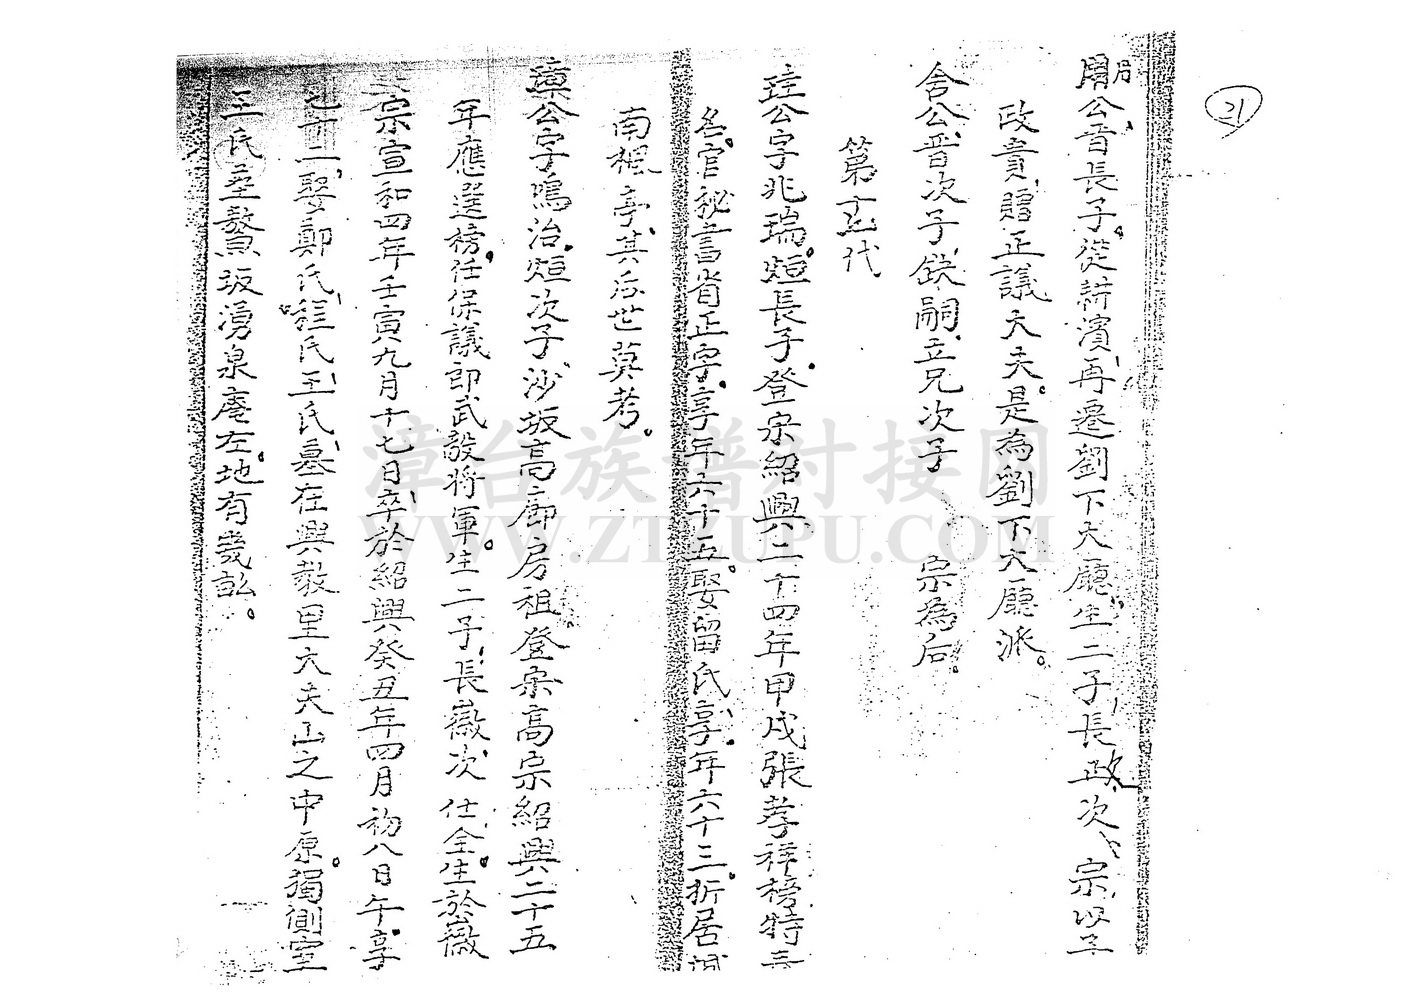 21
用公晋長子。從新濱再遷劉下大廳生二子長政次宗以子
政貴贈正議大夫。是為劉下大廳派。
舍公晋次子缺嗣立兄次子 宗為后。
第十五代
公字兆瑞。烜長子。登宋紹興二十四年甲戌張孝祥榜特
名。官秘書省正字。享年六十五。娶留氏享年六十三。折居
南棍亭其后世莫考。
公字鳴治烜次子沙坂高廊房祖登宋高宗紹興二十五
年應選榜。任保議郎武毅將軍。生二子長薇次 仕全。生於薇
宗宣和四年壬寅九月十七日卒於紹興癸丑年四月初八日午享
二娶鄭氏程氏王氏墓在興教里大夫山之中原。獨側室
王氏塟鰲坂湧泉庵左地有幾畝。
漳台族谱对接网
WWW.ZTZUPU.COM